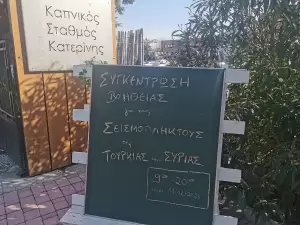 Καπνικός
Σταθμός
Κατερίνης
ΣΥΓΚΕΝΤΡΩΣΗ
ΒΟΗΘΕΙΑΣ
για τους
ΣΕΙΣΜΟΠΛΗΚΤΟΥΣ
της
ΤΟΥΡΚΙΑΣ και ΣΥΡΙΑΣ
9:00 20:00